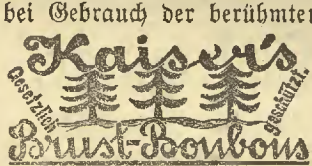 bei Gebrauch der berühmten
Kaiser's
Gesetzlich
geschützt.
Brust-Bonbons